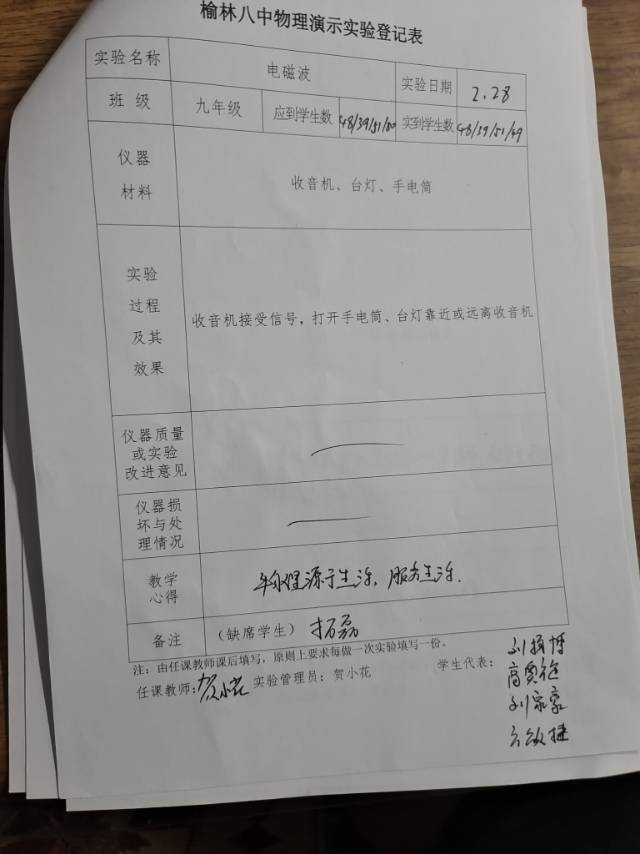 榆林八中物理演示实验登记表
实验名称 电磁波 实验日期 2.28
班 级 九年级 应到学生数 48/39/51/50 实到学生数 48/39/51/49
仪器
材料
收音机、台灯、手电筒
实验
过程
及其
效果
收音机接受信号，打开手电筒、台灯靠近或远离收音机
仪器质量
或实验
改进意见
仪器损
坏与处
理情况
教学
心得
源于生活，服务生活.
备注 （缺席学生）
注：由任课教师课后填写，原则上要求每做一次实验填写一份。
任课教师: 贺小花 实验管理员：贺小花 学生代表：